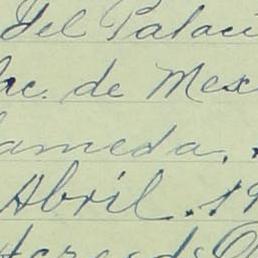 del Palaci
de Mex
ameda,
Abril. 19